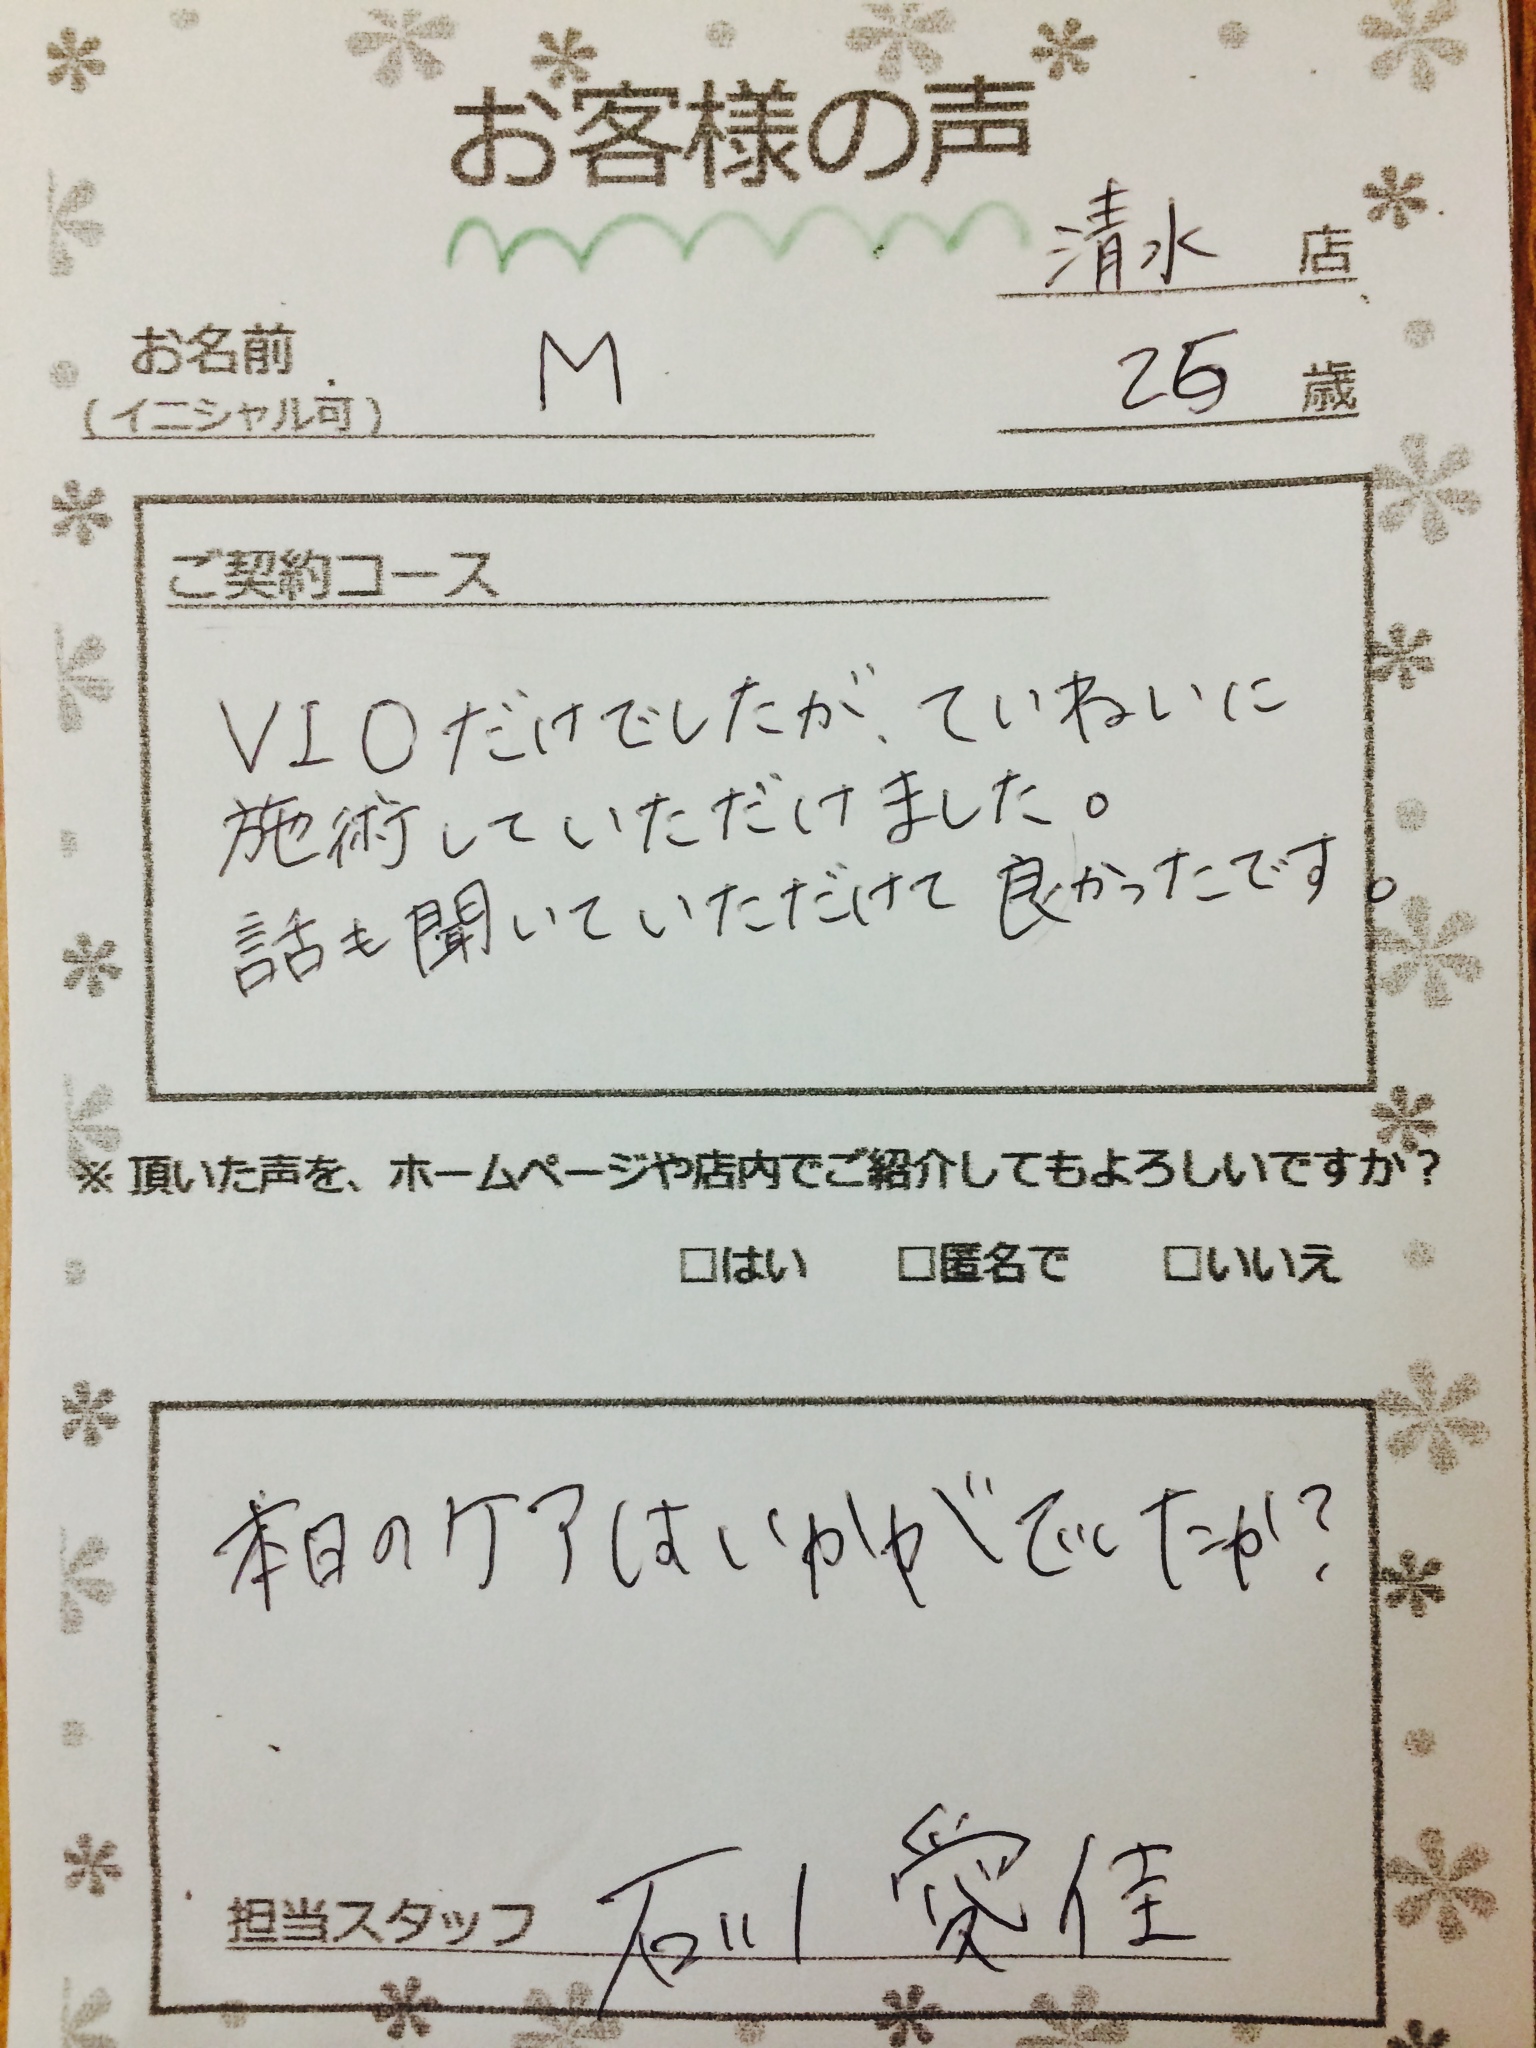 お客様の声
清水 店
お名前 M 25 歳
(イニシャル可)
ご契約コース
VIOだけでしたが、ていねいに
施術していただけました。
話も聞いていただけて良かったです。
※頂いた声を、ホームページや店内でご紹介してもよろしいですか?
□はい □匿名で □いいえ
本日のケアはいかがでしたか?
担当スタッフ 石川 愛佳